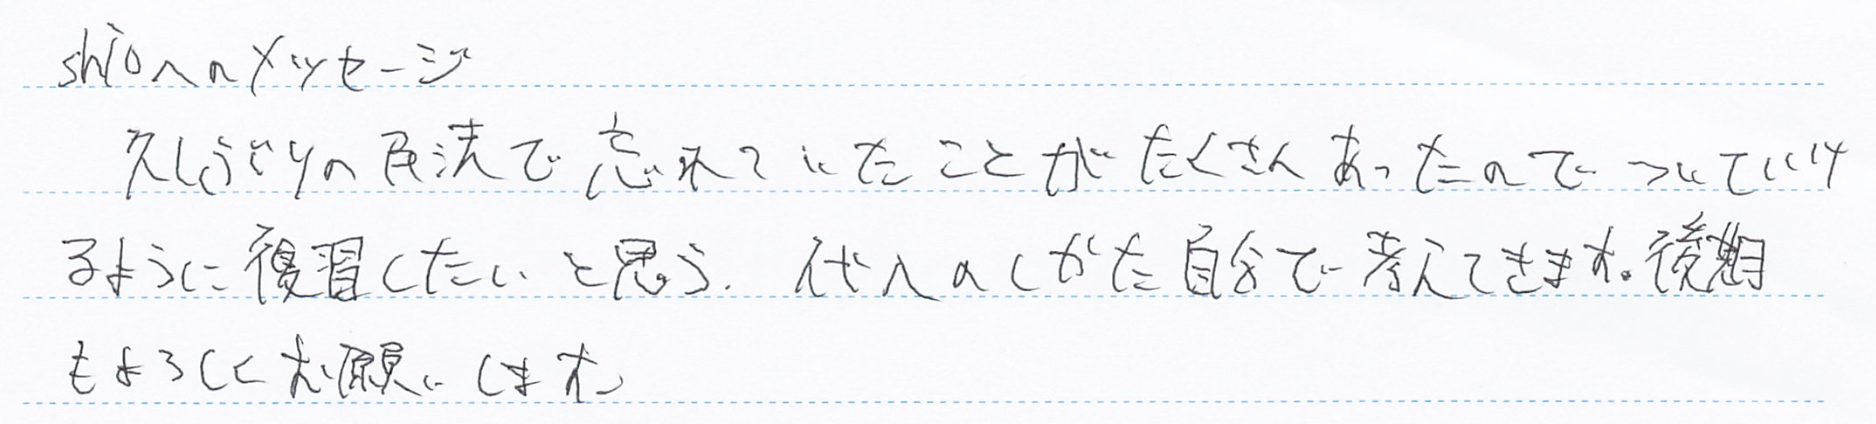 shioへのメッセージ
久しぶりの民法で忘れていたことがたくさんあったのでついていけ
るように復習したいと思う. 代人のしかた自分で考えてきます。後期
もよろしくお願いします